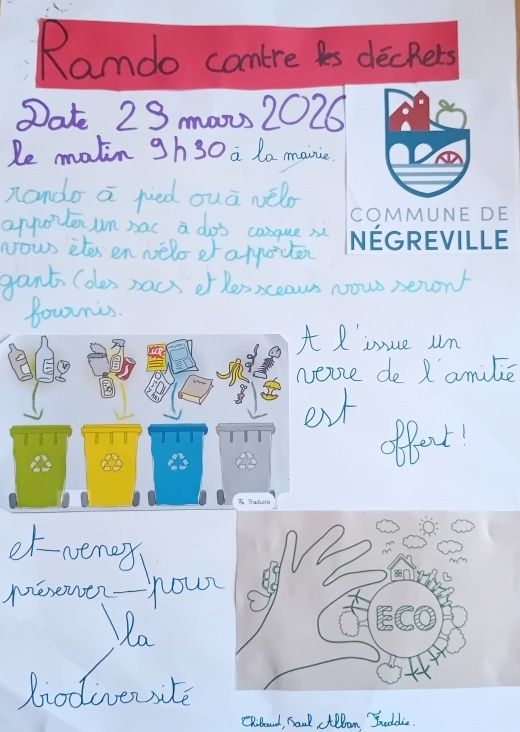 Rando contre les déchets
Date 29 mars 2026
le matin 9h30 à la mairie.
COMMUNE DE
NÉGREVILLE
rando à pied ou à vélo
apporter un sac à dos casque si
vous êtes en vélo et apporter
gants (des sacs et les sceaux vous seront
fournis.
A l'issue un
verre de l'amitié
est
offert!
Traduire
et venez
préserver pour
la
biodiversité
ECO
Thibaud, Saul, Alban, Freddie.